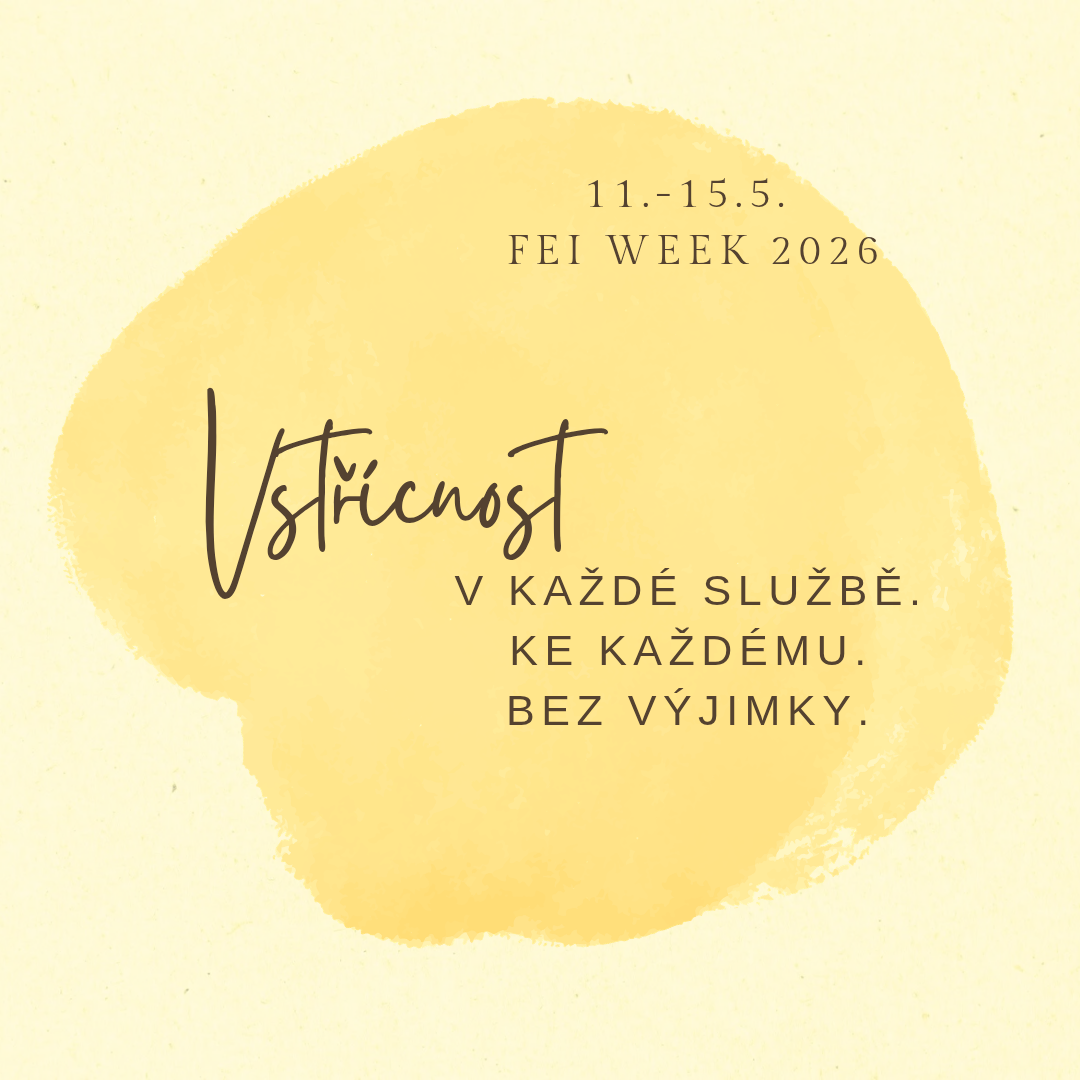 11.-15.5.
FEI WEEK 2026
Vstřícnost
V KAŽDÉ SLUŽBĚ.
KE KAŽDÉMU.
BEZ VÝJIMKY.